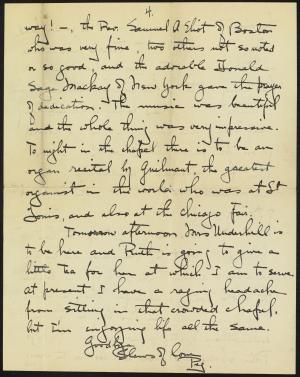 4.
way! —, the Rev. Samuel A Eliot of Boston
who was very fine, two others not so noted
or so good, and the adorable Donald
Sage Mackay of New York gave the prayer
of dedication. The music was beautiful
and the whole thing was very impressive.
To night in the chapel there is to be an
organ recital by Guilmant, the greatest
organist in the world who was at St
Louis, and also at the Chicago Fair.
Tomorrow afternoon Mrs Underhill is
to be here and Ruth is going to give a
little tea for her at which I am to serve.
at present I have a raging headache
from sitting in that crowded chapel,
but I'm enjoying life all the same.
Goodbye
of love
Peg.